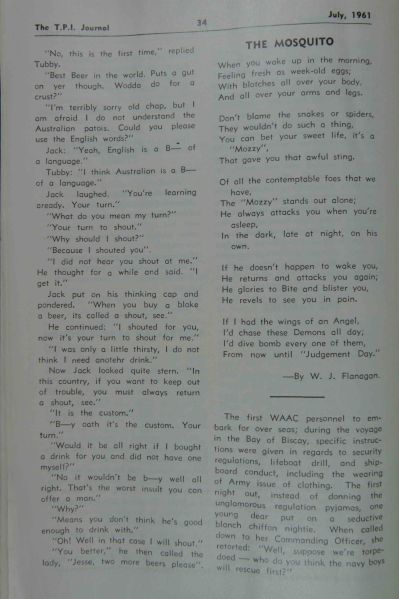 The T.P.I. Journal
34
July, 1961
"No, this is the first time," replied
Tubby.
"Best Beer in the world. Puts a gut
on yer though. Wodda do for a
crust?"
"I'm terribly sorry old chap, but I
am afraid I do not understand the
Australian patois. Could you please
use the English words?"
Jack: "Yeah, English is a B— of
a language."
Tubby: "I think Australian is a B—
of a language."
Jack laughed. "You're learning
aready. Your turn."
"What do you mean my turn?"
"Your turn to shout."
"Why should I shout?"
"Because I shouted you".
"I did not hear you shout at me."
He thought for a while and said. "I
get it."
Jack put on his thinking cap and
pondered. "When you buy a bloke
a beer, its called a shout, see."
He continued: "I shouted for you,
now it's your turn to shout for me."
"I was only a little thirsty, I do not
think I need anotehr drink."
Now Jack looked quite stern. "In
this country, if you want to keep out
of trouble, you must always return
a shout, see."
"It is the custom."
"B—y oath it's the custom. Your
turn."
"Would it be all right if I bought
a drink for you and did not have one
myself?"
"No it wouldn't be b—y well all
right. That's the worst insult you can
offer a man."
"Why?"
"Means you don't think he's good
enough to drink with."
"Oh! Well in that case I will shout."
"You better," he then called the
lady, "Jesse, two more beers please".
THE MOSQUITO
When you wake up in the morning,
Feeling fresh as week-old eggs;
With blotches all over your body,
And all over your arms and legs.
Don't blame the snakes or spiders,
They wouldn't do such a thing,
You can bet your sweet life, it's a
"Mozzy",
That gave you that awful sting.
Of all the contemptable foes that we
have,
The "Mozzy" stands out alone;
He always attacks you when you're
asleep,
In the dark, late at night, on his
own.
If he doesn't happen to wake you,
He returns and attacks you again;
He glories to Bite and blister you,
He revels to see you in pain.
If I had the wings of an Angel,
I'd chase these Demons all day;
I'd dive bomb every one of them,
From now until "Judgement Day."
—By W. J. Flanagan.
The first WAAC personnel to em-
bark for over seas; during the voyage
in the Bay of Biscay, specific instruc-
tions were given in regards to security
regulations, lifeboat drill, and ship-
board conduct, including the wearing
of Army issue of clothing. The first
night out, instead of donning the
unglamorous regulation pyjamas, one
young dear put on a seductive
blanch chiffon nightie. When called
down to her Commanding Officer, she
retorted: "Well, suppose we're torpe-
doed — who do you think the navy boys
will rescue first?"